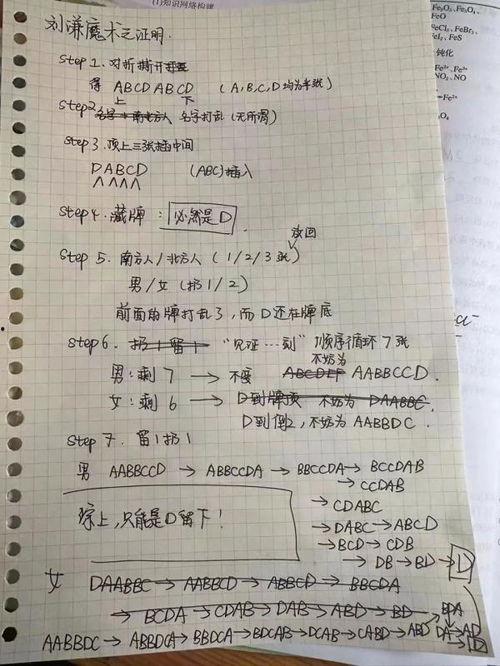 (1)知识网络构建
刘谦魔术之证明.
Step 1. 对折撕开
得 ABCD ABCD (A,B,C,D均为半张)
上 下
Step2 名字打乱(无所谓)
Step 3. 顶上三张插中间
DABCD (ABC)插入
Step 4. 藏牌: 必然是D.
放回
Step 5. 南方人/北方人 (1/2/3张)
男/女 (扔1/2)
前面的牌打乱了,而D还在牌底
Step 6. 扔1留1 "见证…刻" 顺序循环7张
男:剩7 → 不变 ABCDEF 不妨为 AABBCCD.
女:剩6 → D到牌顶 不妨为 DAABBC.
D到倒2,不妨为AABBDC.
Step 7. 留1扔1
男 AABBCCD → ABBCCDA → BBCCDA → BCCDAB
→ CCDAB
→ CDABC
→ DABC → ABCD
→ BCD → CDB
→ DB → BD → D
综上,只能是D留下!
女 DAABBC → AABBCD → ABBCD → BBCDA
→ BCDA → CDAB → DAB → ABD → BD → BDA
AABBDC → ABBDCA → BBDCA → BDCAB → DCAB → CABD → ABD → DA → AD → D
Fe₂O₃、Fe₃O₄、
FeO
FeCl₃、FeBr₃、
FeI₂、FeS
钝化
NO₂、NO